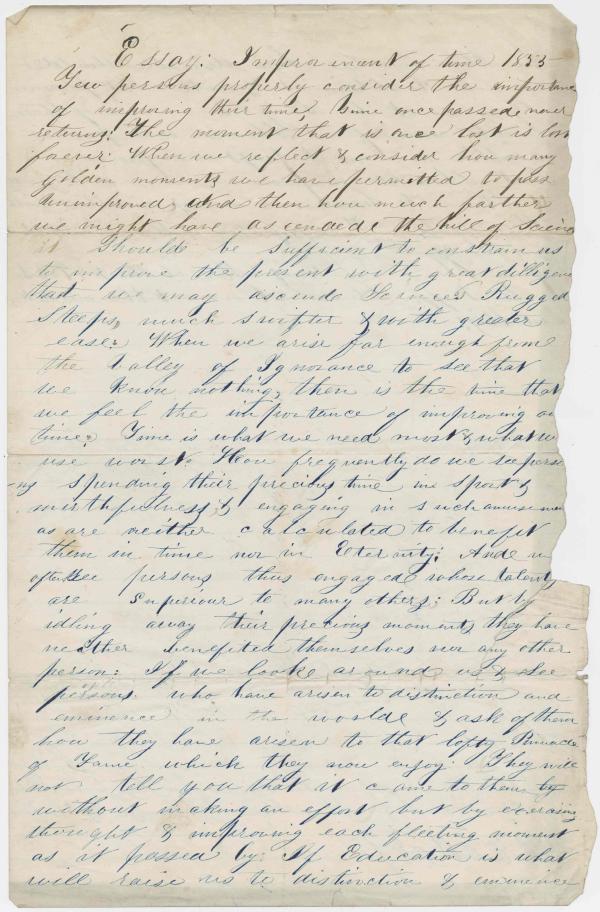 Essay: Improvement of time 1855
Few persons properly consider the importance
of improving their time, Time once passed never
returns! The moment that is once lost is lost
forever: When we reflect & consider how many
Golden moments we have permitted to pass
Unimproved, and then how much farther
we might have ascended the hill of Science
it Should be Sufficient to constrain us
to improve the present with great dilligence
that we may ascende Sciences Rugged
Steeps, much swifter & with greater
ease: When we arise far enough from
the Valley of Ignorance to see that
we know nothing, then is the time that
we feel the importance of improving our
time: Time is what we need most & what we
use worst. How frequently do we see perso
ns spending their precious time in Sport &
mirthfulness, & engaging in such amusemen
as are neither calculated to benefit
them in time nor in Eternity: Ande we
often see persons thus engaged whose talents
are Superiour to many others: But by
idling away their precious moments they have
neather benefited themselves nor any other
person: If we looke around us & see
persons who have arisen to distinction and
eminence in the worlde & ask of them
how they have arisen to that lofty Pinnacle
of Fame which they now enjoy: They will
not tell you that it came to them by
without making an effort but by exercising
thought & improving each fleeting moment
as it passed by: If Education is what
will raise us to distinction & eminence